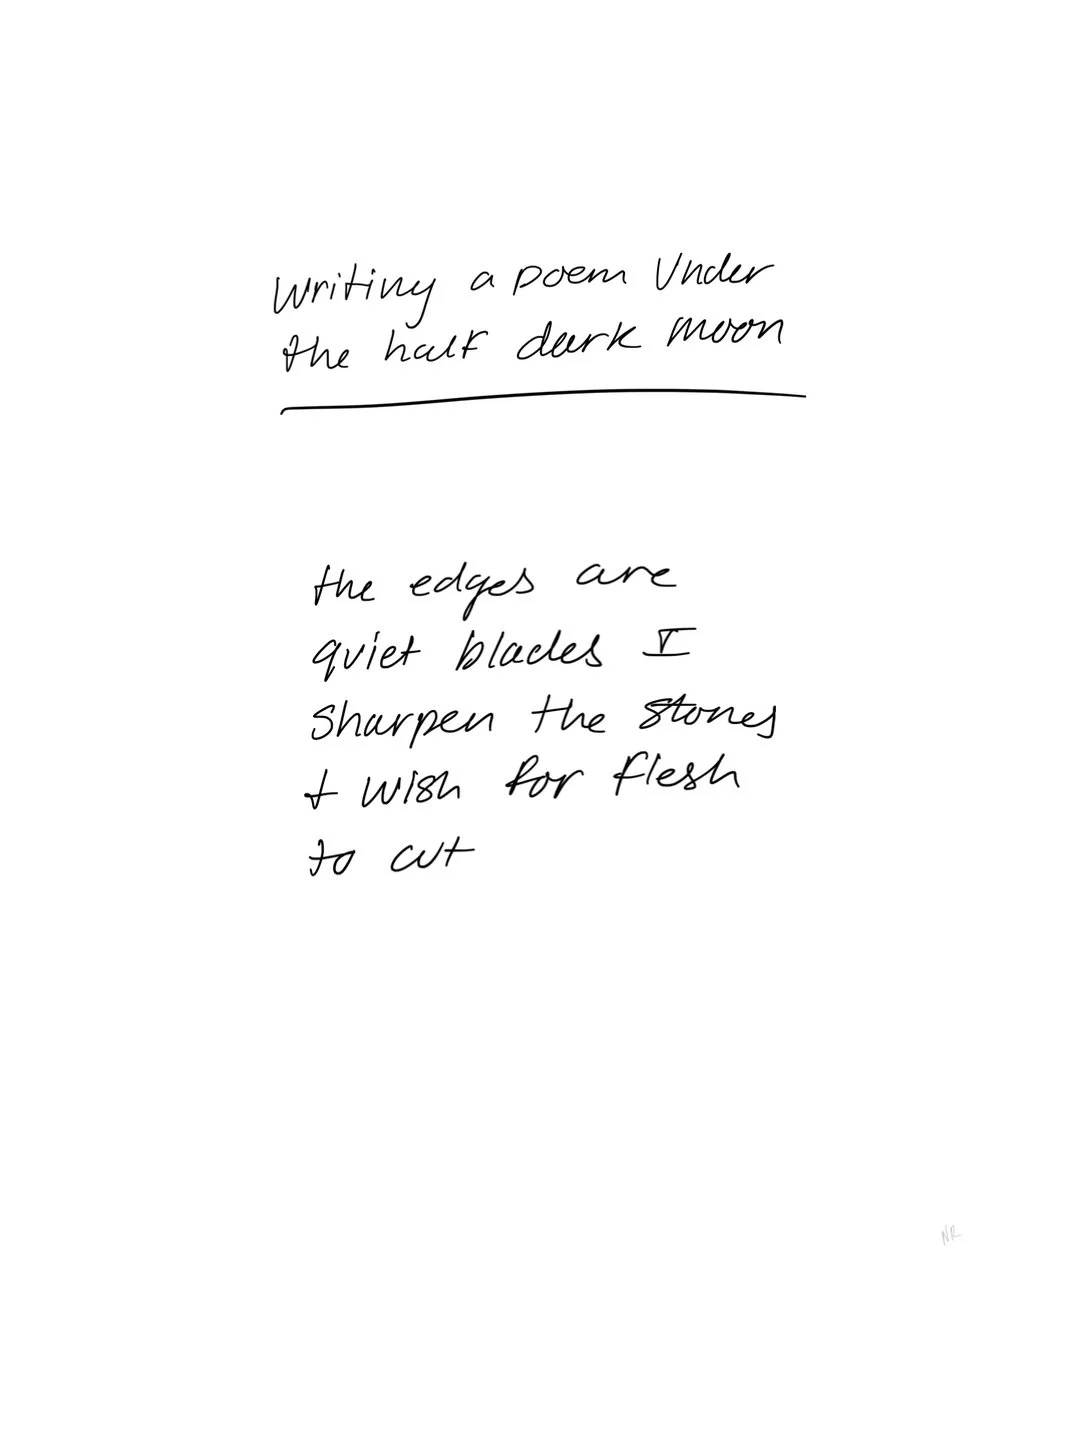 Writing a poem Under
the half dark moon
the edges are
quiet blades I
sharpen the stones
+ wish for flesh
to cut
NR